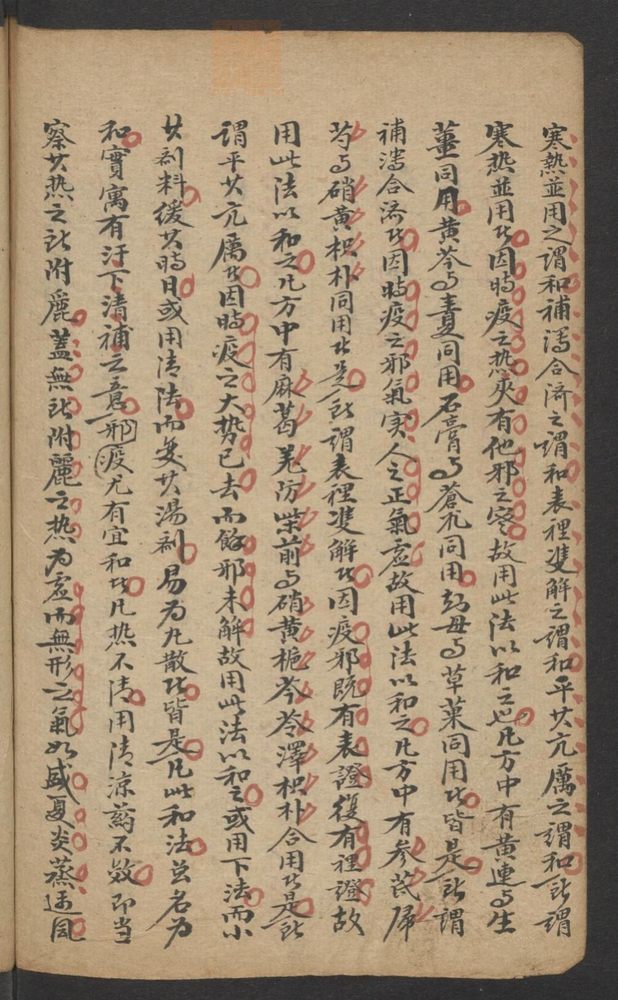 寒熱並用之謂和補瀉合濟之謂和表裡雙解之謂和平其亢厲之謂和所謂
寒熱並用者因時疫之熱夾有他邪之寒故用此法以和之也凡方中有黃連与生
薑同用黃芩与半夏同用石膏与蒼朮同用知母与草菓同用者皆是所謂
補瀉合濟者因時疫之邪氣实人之正氣虛故用此法以和之凡方中有參芪歸
芍与硝黃枳朴同用者是所謂表裡雙解者因疫邪既有表證復有裡證故
用此法以和之凡方中有麻葛羌防柴前与硝黃梔芩苓澤枳朴合用者是所
謂平其亢厲者因時疫之大势已去而餘邪未解故用此法以和之或用下法而小
其劑料緩其時日或用清法而变其湯劑易为丸散者皆是凡此和法虽名为
和實寓有汗下清補之意邪疫尤有宜和者凡热不清用清涼药不效即当
察其热之所附麗蓋無所附麗之热为虛而無形之氣如盛夏炎蒸遇風